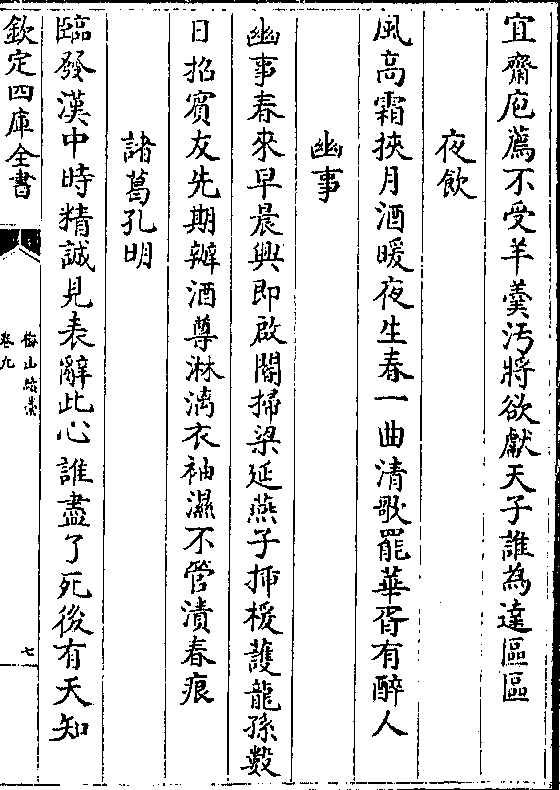 宜齋庖薦不受羊羹汚將欲獻天子誰為達區區
夜飲
風高霜挾月酒暖夜生春一曲清歌罷華胥有醉人
幽事
幽事春來早晨興即啟閽掃梁延燕子揷楥護龍孫數
日招賓友先期辦酒尊淋漓衣袖濕不管漬春痕
諸葛孔明
臨發漢中時精誠見表辭此心誰盡了死後有天知
欽定四庫全書
梅山續藁
卷九
七